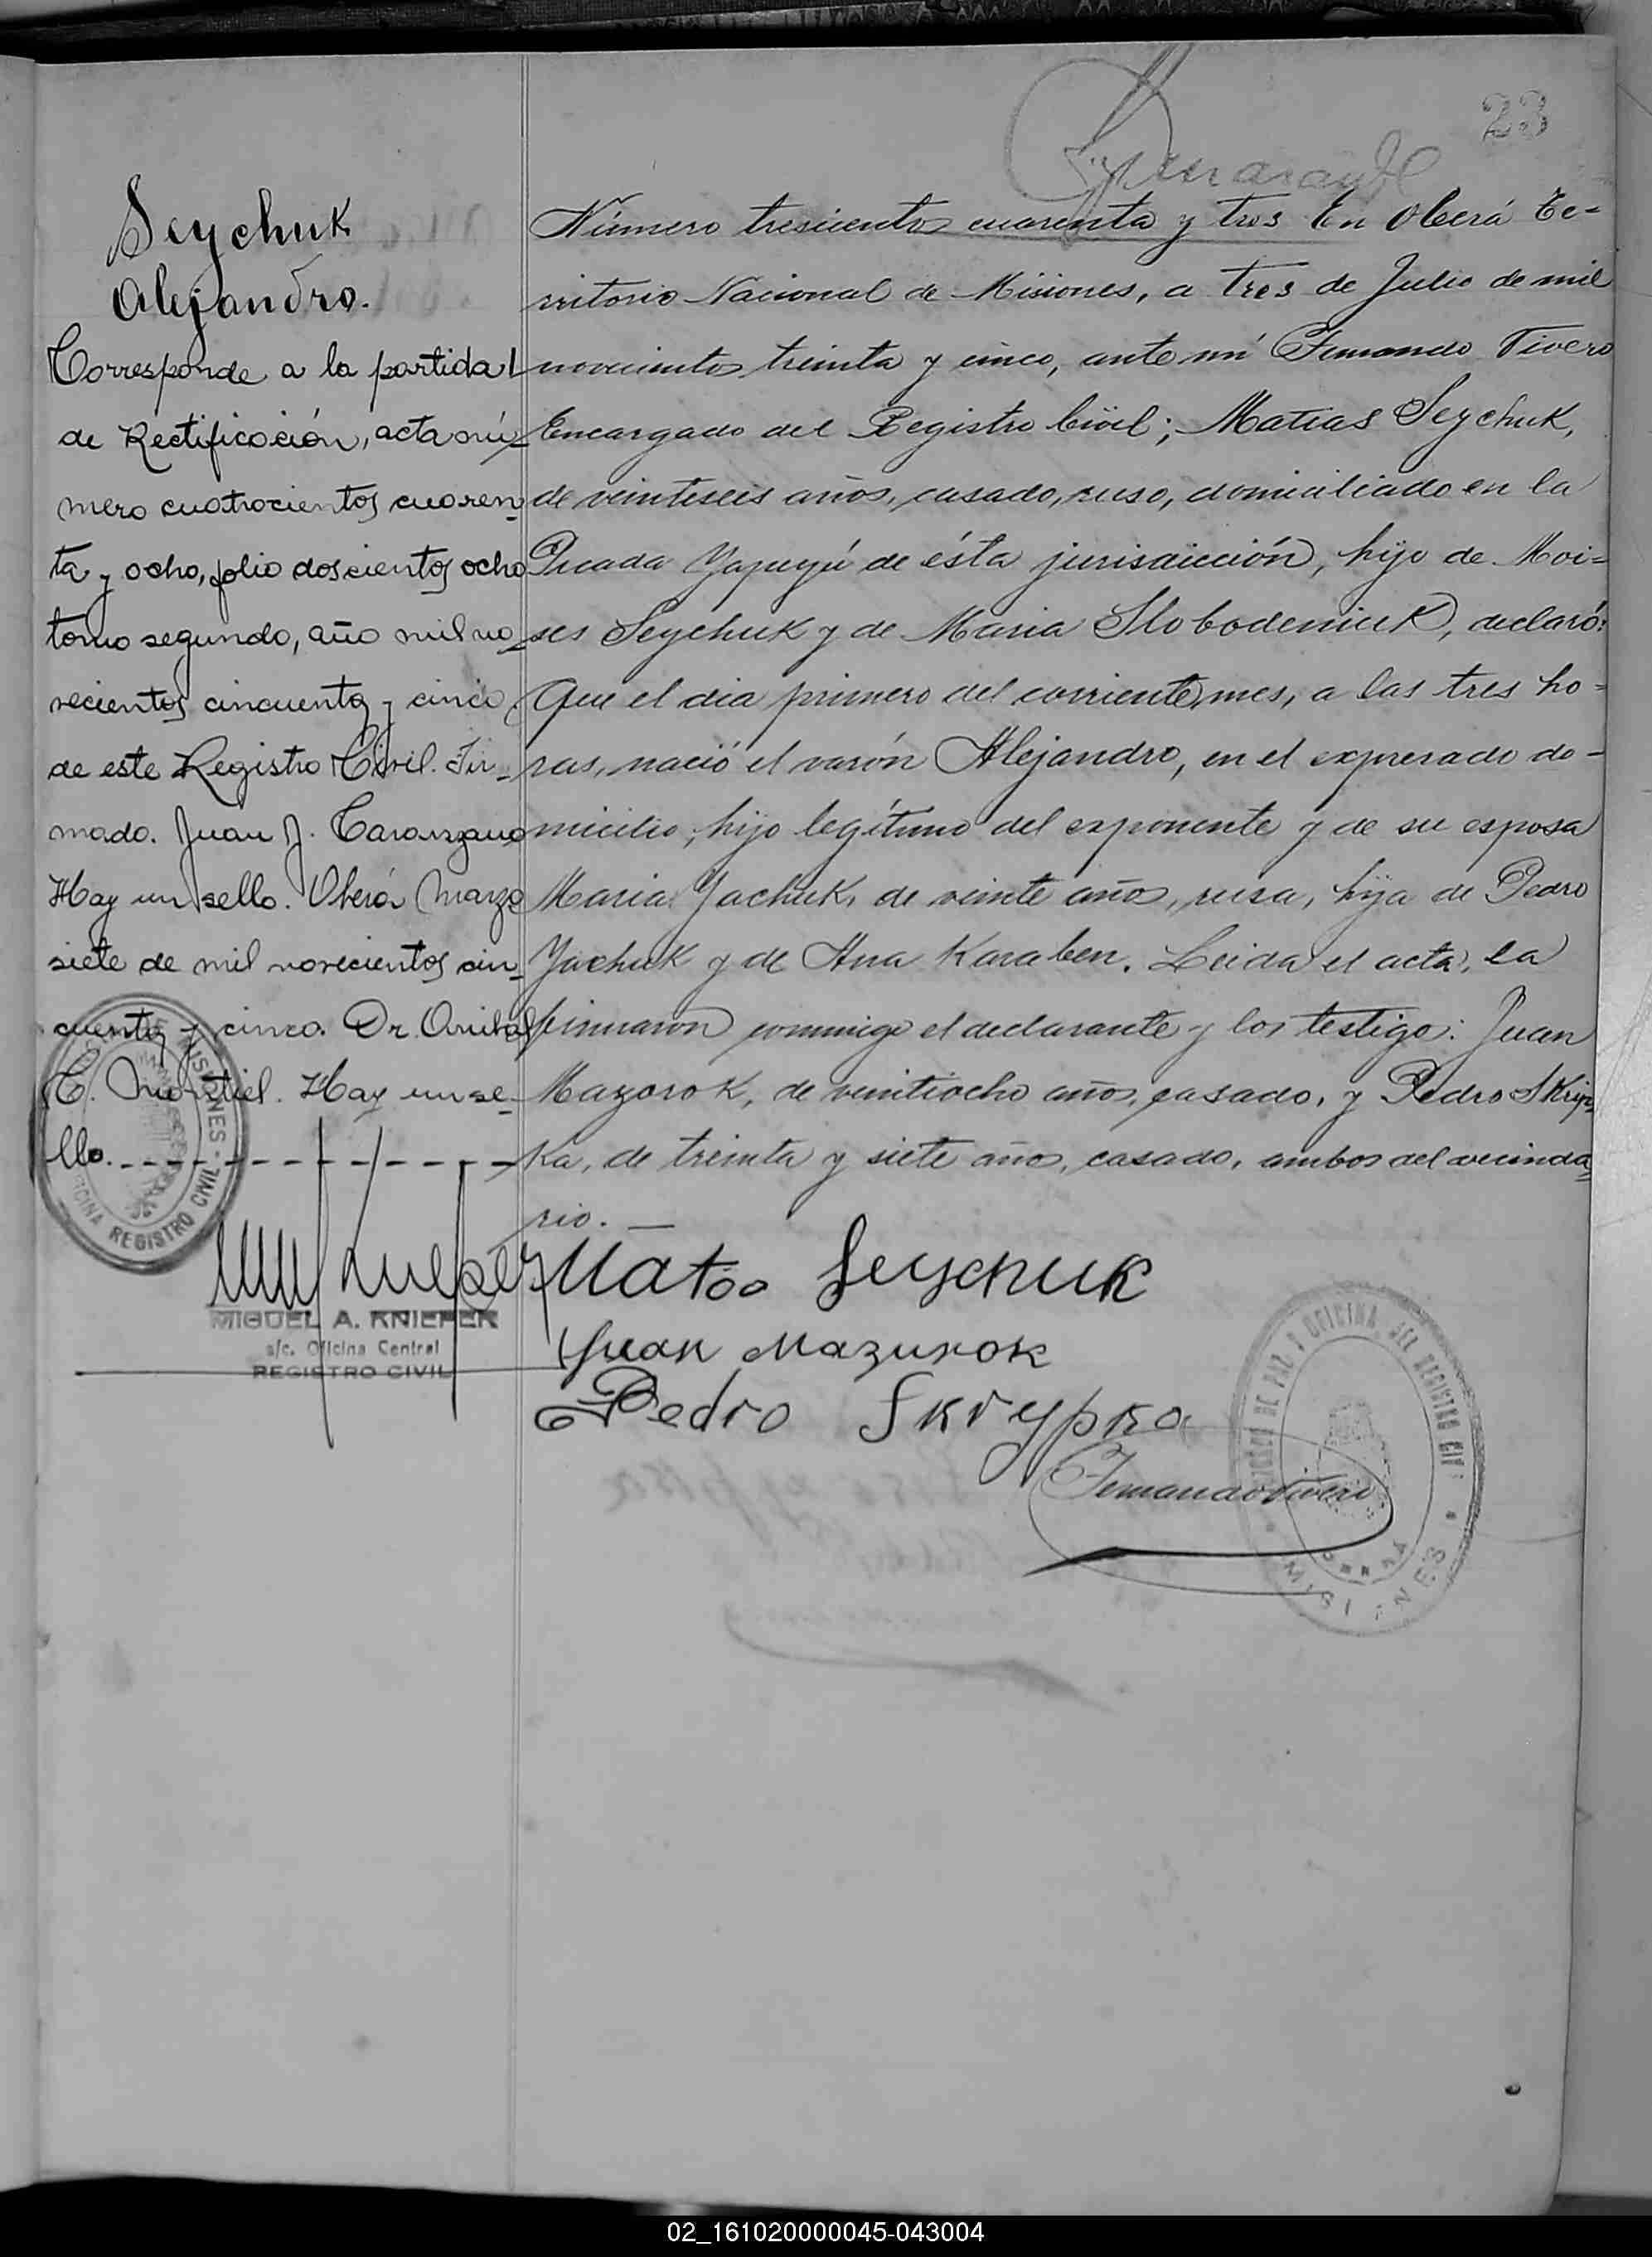 23
Seychuk
Alejandro.
Corresponde a la partida
de Rectificación, acta nú-
mero cuatrocientos cuaren-
ta y ocho, folio doscientos ocho
tomo segundo, año mil no-
vecientos cincuenta y cinco
de este Registro Civil. Fir-
mado. Juan J. Taranzano
Hay un sello. Oberá Marzo
siete de mil novecientos cin-
cuenta y cinco. Dr. Anibal
C. Hay un se-
llo.
MISIONES - OFICINA REGISTRO CIVIL
MIGUEL A. KNIEPER
a/c. Oficina Central
REGISTRO CIVIL
Número trescientos cuarenta y tres En Oberá Te-
rritorio Nacional de Misiones, a tres de Julio de mil
novecientos treinta y cinco, ante mí Fernando Tivero
Encargado del Registro Civil; Matias Seychuk,
de veintiseis años, casado, ruso, domiciliado en la
Picada Yapeyú de ésta jurisdicción, hijo de Moi=
ses Seychuk y de Maria Slobodeniuk, declaró:
Que el dia primero del corriente mes, a las tres ho=
ras, nació el varón Alejandro, en el expresado do-
micilio, hijo legítimo del exponente y de su esposa
Maria Yachuk, de veinte años, rusa, hija de Pedro
Yachuk y de Ana Karaben. Leida el acta, la
firmaron conmigo el declarante y los testigos: Juan
Mazorok, de veintiocho años, casado, y Pedro Skrip=
ka, de treinta y siete años, casado, ambos del vecinda=
rio. —
Seychuk
Juan Mazurok
Pedro Skrypka
Fernando Tivero
OFICINA DEL REGISTRO CIVIL
MISIONES
02_161020000045-043004